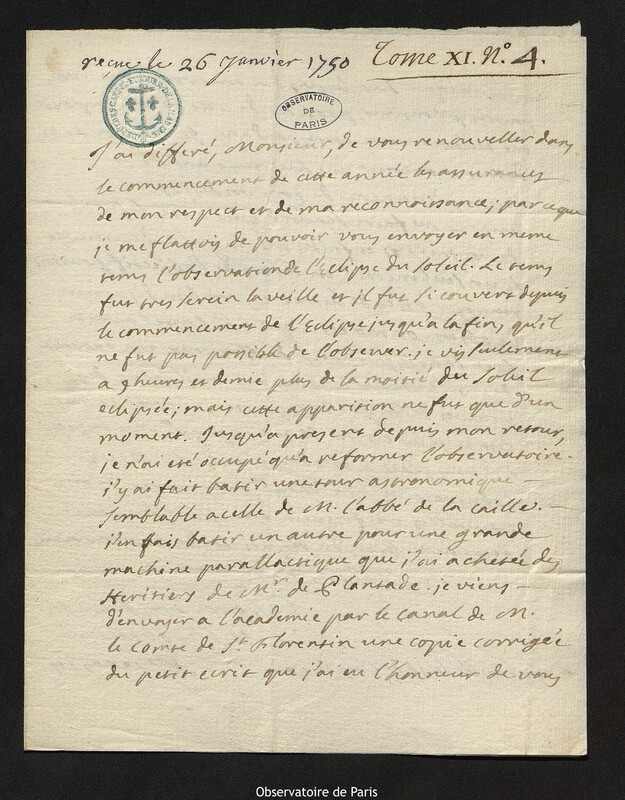 reçue le 26 Janvier 1750 Tome XI. N.o 4.
OBSERVATOIRE
DE
PARIS
J'ai differé, Monsieur, de vous renouveller dans
le commencement de cette année les assurances
de mon respect et de ma reconnoissance; parceque
je me flattois de pouvoir vous envoyer en meme
tems l'observation de l'Eclipse du soleil. Le tems
fut tres serein la veille et il fut si couvert depuis
le commencement de l'Eclipse jusqu'a la fin, qu'il
ne fut pas possible de l'observer. je vis seulement
a 9 heures et demie plus de la moitié du Soleil
eclipsée; mais cette apparition ne fut que d'un
moment. Jusqu'a present depuis mon retour,
je n'ai eté occupé qu'a reformer l'observatoire.
j'y ai fait batir une tour astronomique
semblable a celle de M. l'abbé de la caille.
j'en fais batir un autre pour une grande
machine parallactique que j'ai achetée des
Heritiers de Mr. de Plantade. je viens
d'envoyer a l'academie par le canal de M.
le comte de St. Florentin une copie corrigée
du petit ecrit que j'ai eu l'honneur de vous
Observatoire de Paris